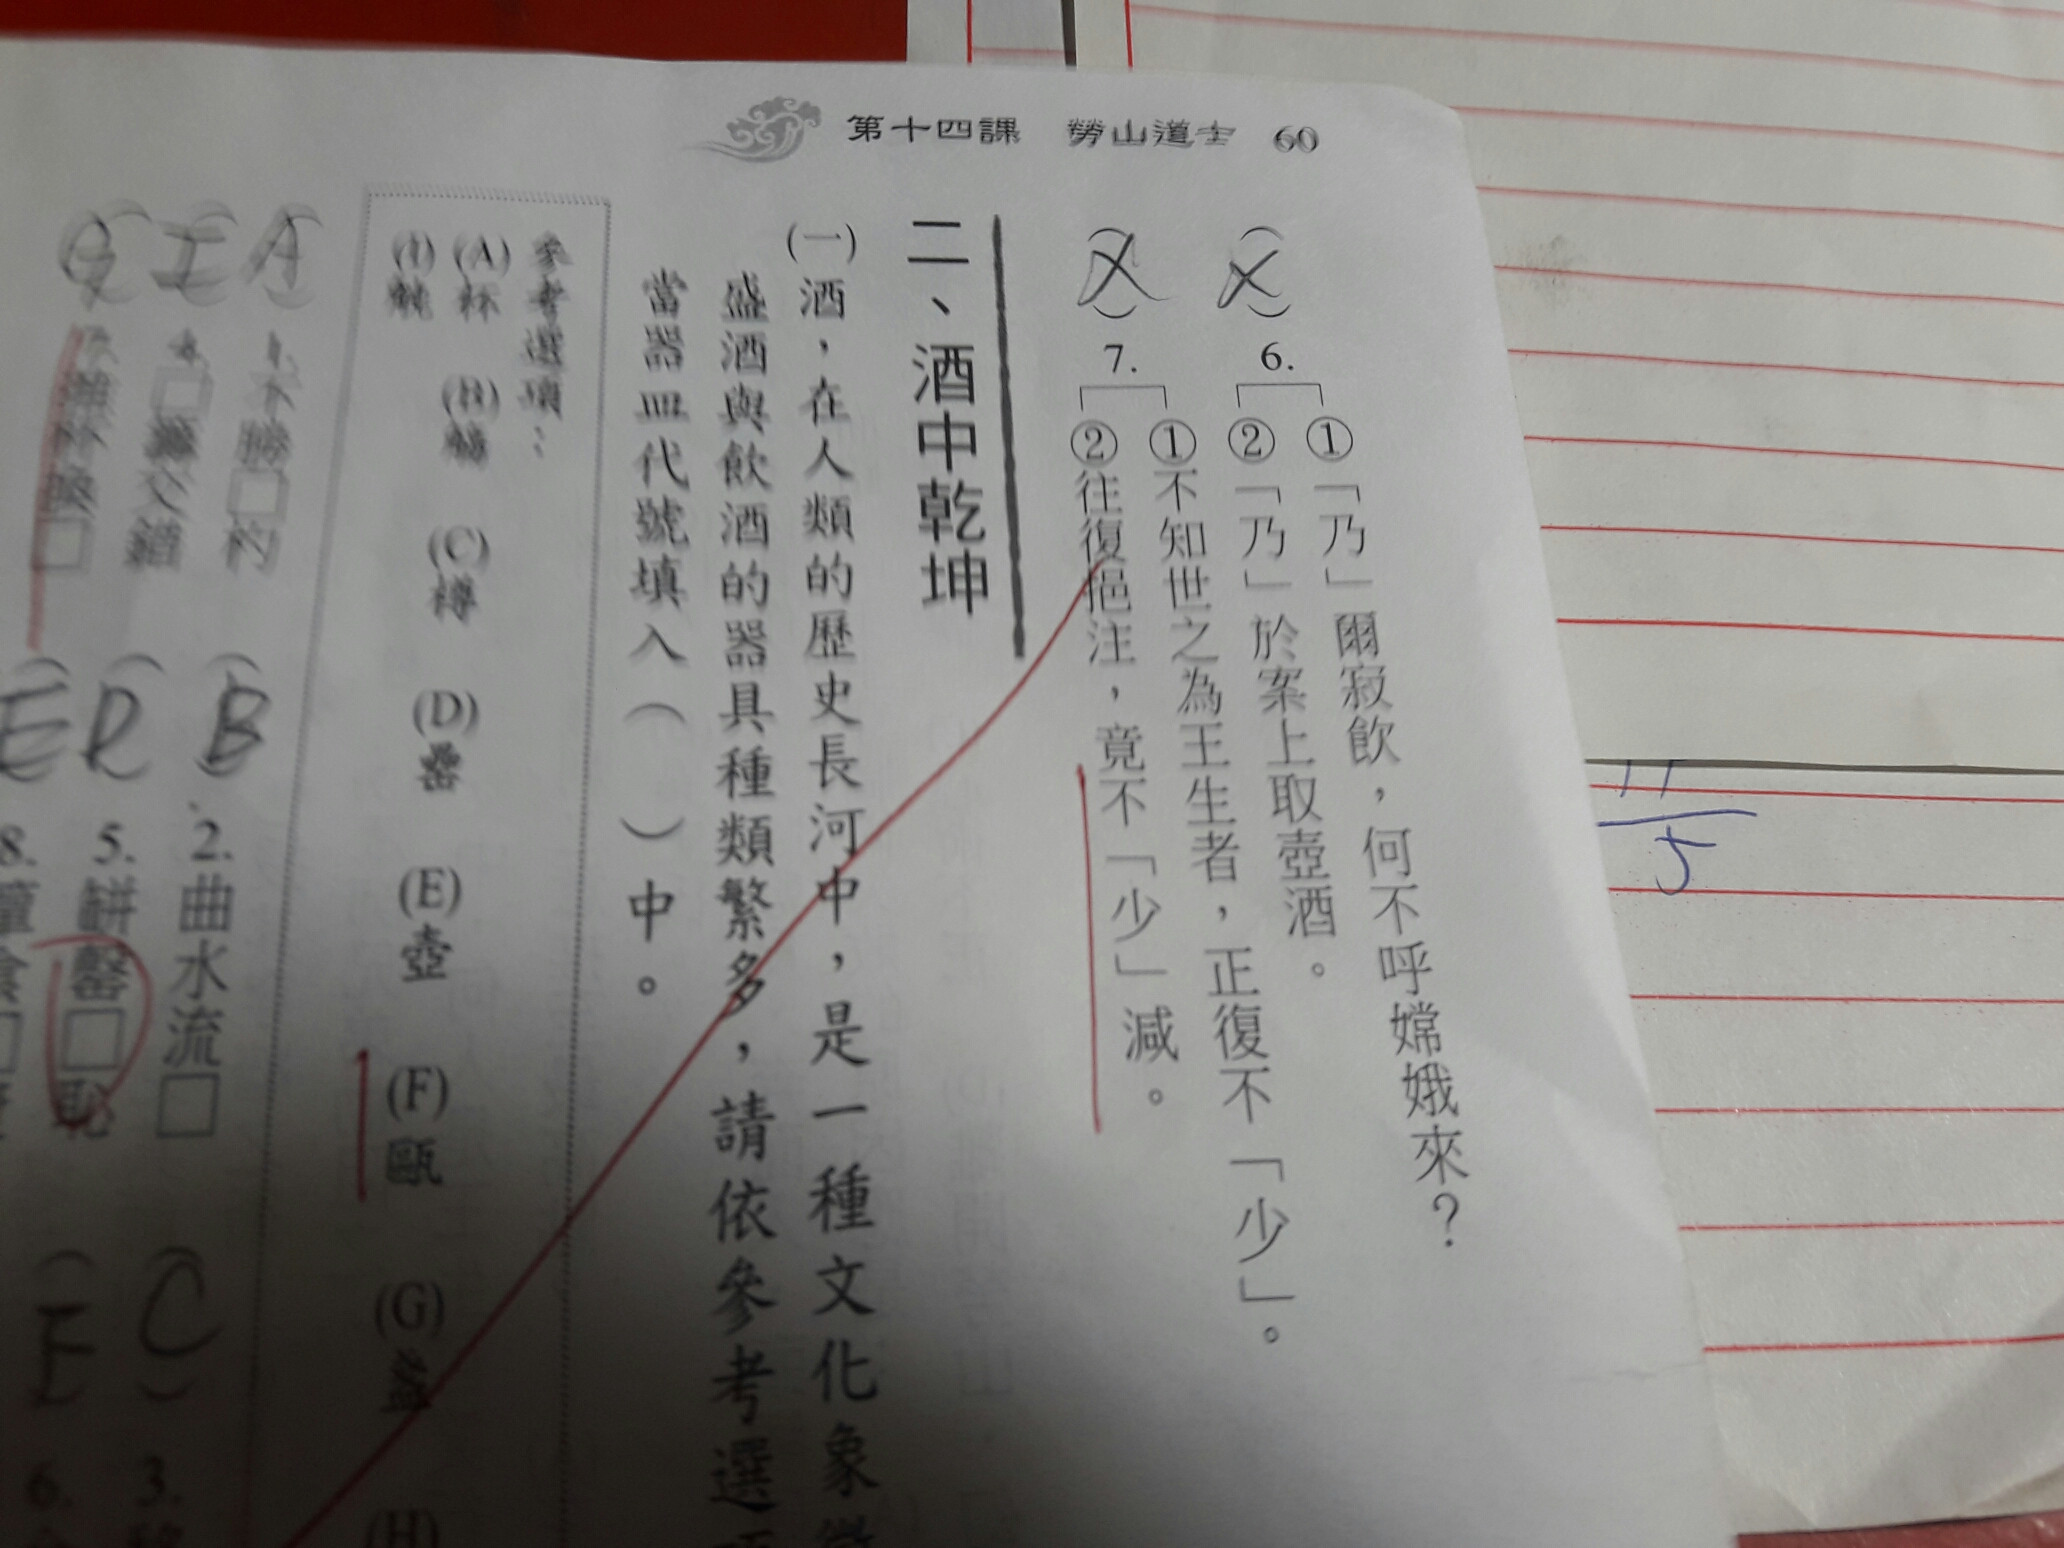 第十四課　勞山道士　60
(ㄨ) 6. ①「乃」爾寂飲，何不呼嫦娥來？
②「乃」於案上取壺酒。
(ㄨ) 7. ①不知世之為王生者，正復不「少」。
②往復挹注，竟不「少」減。
二、酒中乾坤
(一)酒，在人類的歷史長河中，是一種文化象徵
盛酒與飲酒的器具種類繁多，請依參考選項
當器皿代號填入（　）中。
參考選項：
(A)杯 (B)觴 (C)樽 (D)罍 (E)壺 (F)甌 (G)盞 (H)
(I)觥
(A) 1.不勝□杓 (B) 2.曲水流□ (C) 3.
(I) 4.□籌交錯 (D) 5.缾罄□恥 (F) 6.
(G) □ (E) 8.簞食□
11
5